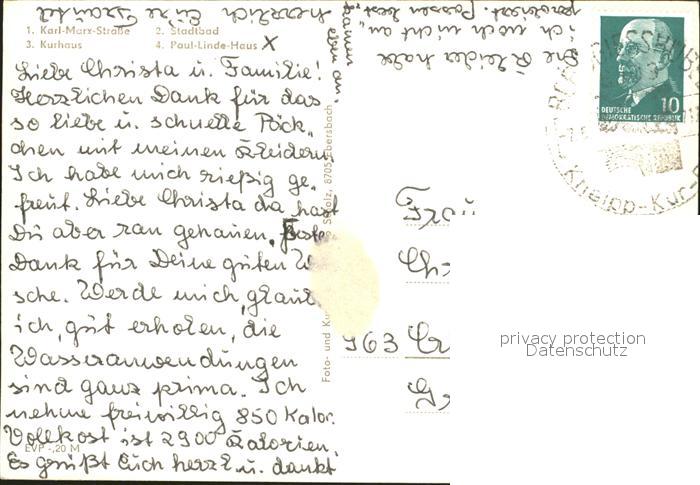 1. Karl-Marx-Straße 2. Stadtbad
3. Kurhaus 4. Paul-Linde-Haus X
Liebe Christa u. Familie!
Herzlichen Dank für das
so liebe u. schnelle Päck,
chen mit meinen Kleidern
Ich habe mich rießig ge,
freut. Liebe Christa da hast
Du aber ran gehauen.
Dank für Deine guten Wün
sche. Werde mich, glaub
ich, gut erholen, die
Wasseranwendungen
sind ganz prima. Ich
nehme freiwillig 850 Kalor.
Vollkost ist 2900 Kalorien.
EVP -,20 M
Es grüßt Euch herzl. u. dankt
herzlich Eure
Die Kleider habe
ich noch nicht an,
probiert. Passen best.
kamen
eben an.
Foto- und Ku
8705 Ebersbach
963
DEUTSCHE
DEMOKRATISCHE REPUBLIK
10
Kneipp-Kur-
privacy protection
Datenschutz